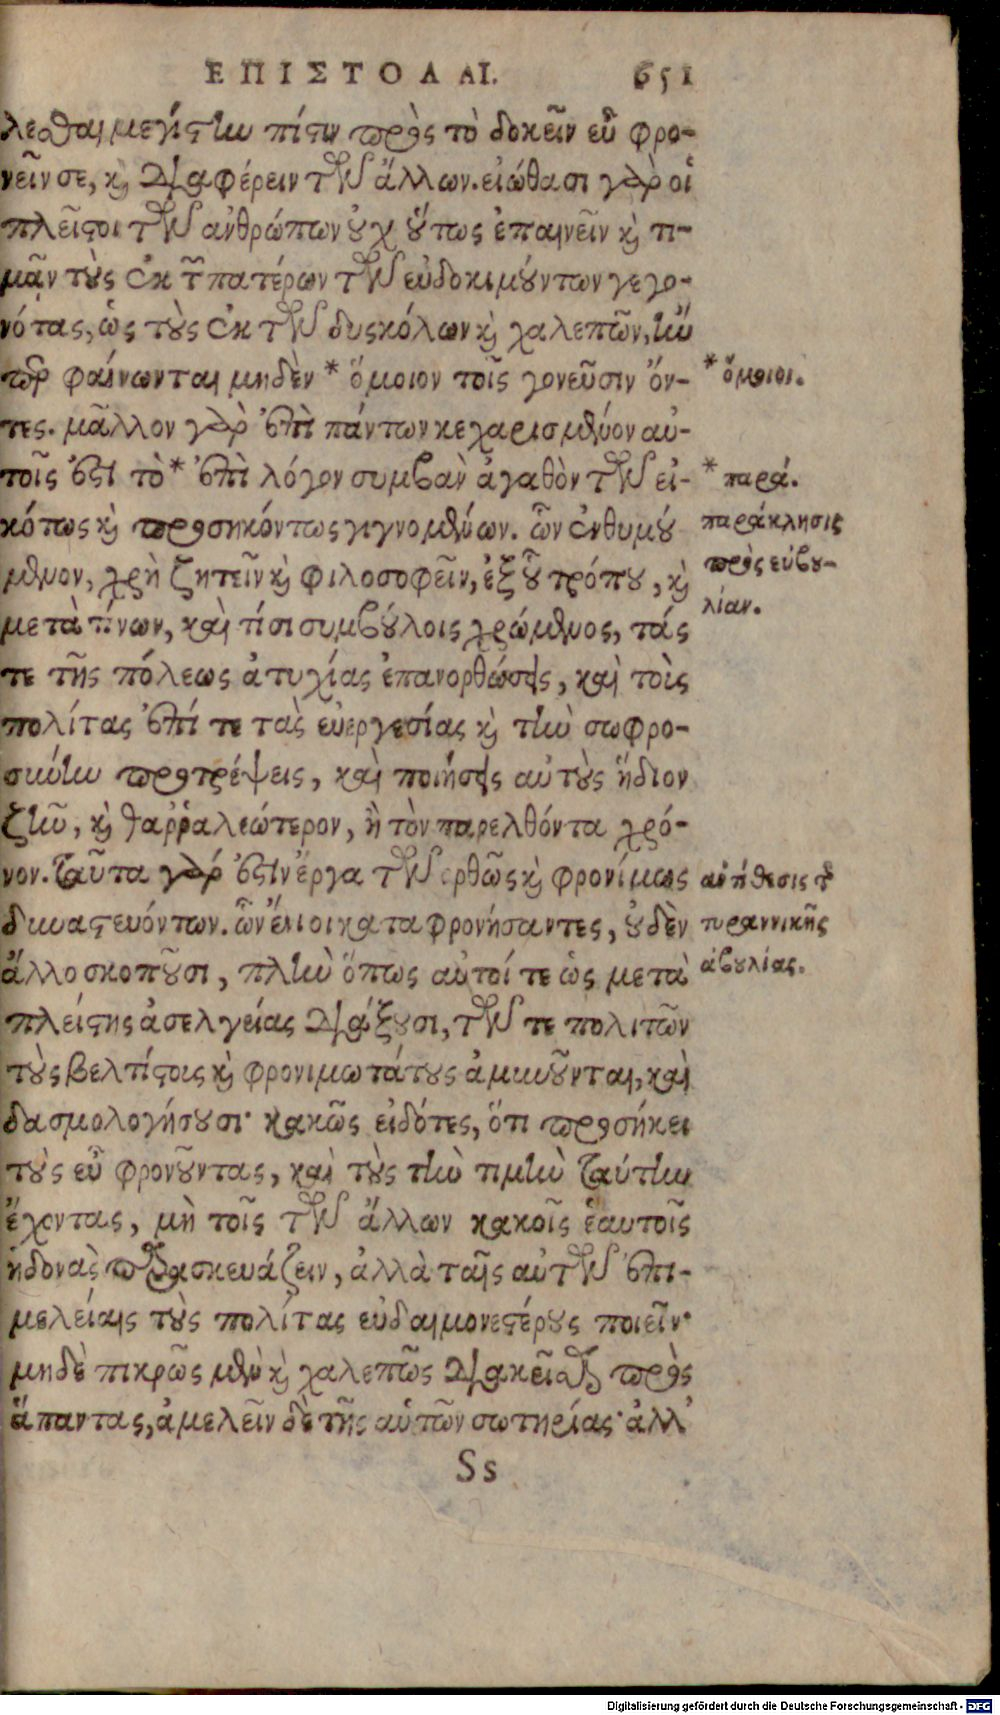 ΕΠΙΣΤΟΛΑΙ. 651
λεσθαι μεγίστην πίστιν πρὸς τὸ δοκεῖν εὖ φρο-
νεῖν σε, καὶ διαφέρειν τῶν ἄλλων. εἰώθασι γὰρ οἱ
πλεῖστοι τῶν ἀνθρώπων οὐχ οὕτως ἐπαινεῖν καὶ τι-
μᾶν τοὺς ἐκ τῶν πατέρων τῶν εὐδοκιμούντων γεγο-
νότας, ὡς τοὺς ἐκ τῶν δυσκόλων καὶ χαλεπῶν, ἤν
περ φαίνωνται μηδὲν * ὅμοιον τοῖς γονεῦσιν ὄν-
* ὅμοιοι.
τες. μᾶλλον γὰρ ἐπὶ πάντων κεχαρισμένον αὐ-
τοῖς ἐστι τὸ * ἐπὶ λόγον συμβὰν ἀγαθὸν τῶν εἰ-
* παρά.
κότως καὶ προσηκόντως γιγνομένων. ὧν ἐνθυμού
παράκλησις
μενον, χρὴ ζητεῖν καὶ φιλοσοφεῖν, ἐξ οὗ τρόπου, καὶ
πρὸς εὐβου-
μετὰ τίνων, καὶ τίσι συμβούλοις χρώμενος, τάς
λίαν.
τε τῆς πόλεως ἀτυχίας ἐπανορθώσεις, καὶ τοὺς
πολίτας ἐπί τε τὰς εὐεργεσίας καὶ τὴν σωφρο-
σύνην προτρέψεις, καὶ ποιήσεις αὐτοὺς ἥδιον
ζῆν, καὶ θαῤῥαλεώτερον, ἢ τὸν παρελθόντα χρό-
νον. ταῦτα γάρ ἐστιν ἔργα τῶν ὀρθῶς καὶ φρονίμως
ἀντίθεσις τῆς
δυναστευόντων. ὧν ἔνιοι καταφρονήσαντες, οὐδὲν
τυραννικῆς
ἄλλο σκοποῦσι, πλὴν ὅπως αὐτοί τε ὡς μετὰ
ἀβουλίας.
πλείστης ἀσελγείας διάξουσι, τῶν τε πολιτῶν
τοὺς βελτίστους καὶ φρονιμωτάτους ἀμυνοῦνται, καὶ
δασμολογήσουσι· κακῶς εἰδότες, ὅτι προσήκει
τοὺς εὖ φρονοῦντας, καὶ τοὺς τὴν τιμὴν ταύτην
ἔχοντας, μὴ τοῖς τῶν ἄλλων κακοῖς ἑαυτοῖς
ἡδονὰς παρασκευάζειν, ἀλλὰ ταῖς αὐτῶν ἐπι-
μελείαις τοὺς πολίτας εὐδαιμονεστέρους ποιεῖν·
μηδὲ πικρῶς μὲν καὶ χαλεπῶς διακεῖσθαι πρὸς
ἅπαντας, ἀμελεῖν δὲ τῆς αὑτῶν σωτηρίας· ἀλλ'
Ss
Digitalisierung gefördert durch die Deutsche Forschungsgemeinschaft - DFG